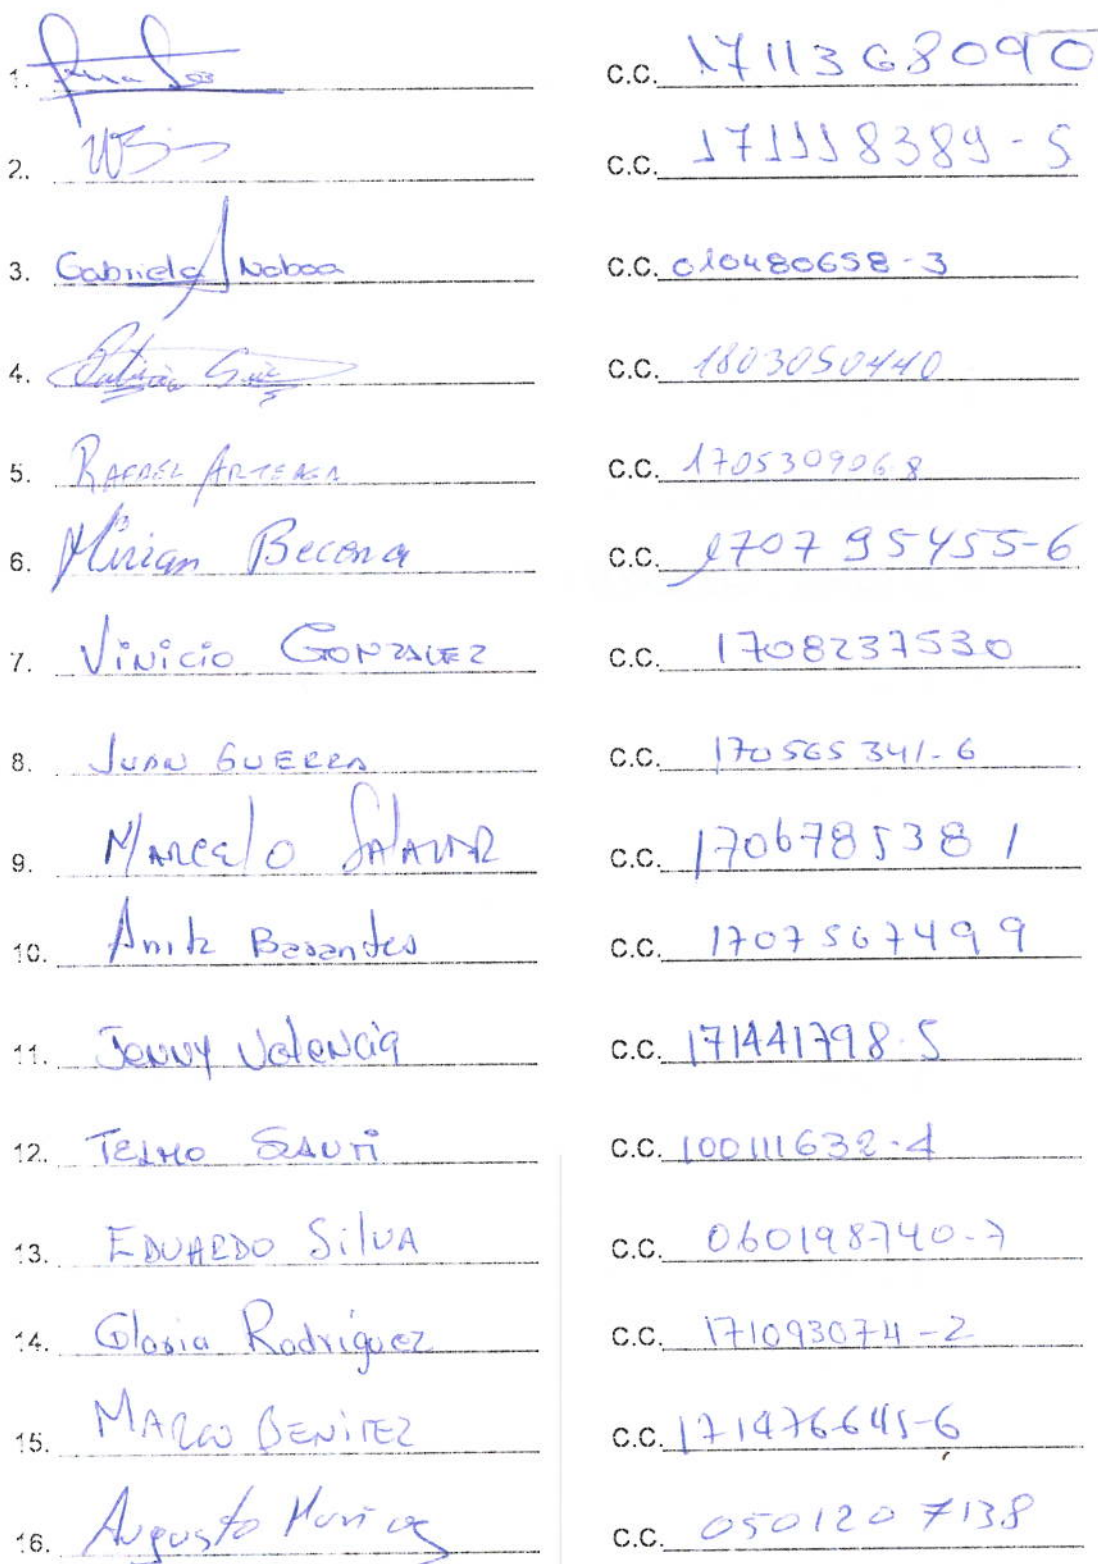 1. C.C. 1711368090
2. C.C. 171118389-5
3. Gabriela Noboa C.C. 010480658-3
4. C.C. 1803050440
5. RAFAEL ARTEAGA C.C. 1705309068
6. Mirian Becerra C.C. 170795455-6
7. Vinicio GONZALEZ C.C. 1708237530
8. JUAN GUERRA C.C. 170565341-6
9. MARCELO SALAZAR C.C. 1706785381
10. Anita Basantes C.C. 1707567499
11. JENNY Valencia C.C. 171441798-5
12. TELMO C.C. 100111632-4
13. EDUARDO SilVA C.C. 060198740-7
14. Gloria Rodriguez C.C. 171093074-2
15. MARCO BENITEZ C.C. 171476645-6
16. Augusto C.C. 0501207138